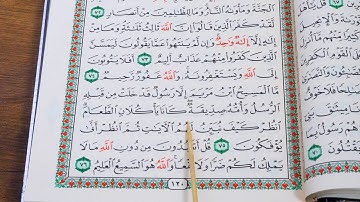 ٱلۡجَنَّةَ وَمَأۡوَىٰهُ ٱلنَّارُۖ وَمَا لِلظَّٰلِمِينَ مِنۡ أَنصَارٖ ٧٢
لَّقَدۡ كَفَرَ ٱلَّذِينَ قَالُوٓاْ إِنَّ ٱللَّهَ ثَالِثُ ثَلَٰثَةٖۘ وَمَا مِنۡ
إِلَٰهٍ إِلَّآ إِلَٰهٞ وَٰحِدٞۚ وَإِن لَّمۡ يَنتَهُواْ عَمَّا يَقُولُونَ لَيَمَسَّنَّ
ٱلَّذِينَ كَفَرُواْ مِنۡهُمۡ عَذَابٌ أَلِيمٌ ٧٣ أَفَلَا يَتُوبُونَ
إِلَى ٱللَّهِ وَيَسۡتَغۡفِرُونَهُۥۚ وَٱللَّهُ غَفُورٞ رَّحِيمٞ ٧٤
مَّا ٱلۡمَسِيحُ ٱبۡنُ مَرۡيَمَ إِلَّا رَسُولٞ قَدۡ خَلَتۡ مِن قَبۡلِهِ
ٱلرُّسُلُ وَأُمُّهُۥ صِدِّيقَةٞۖ كَانَا يَأۡكُلَانِ ٱلطَّعَامَۗ
ٱنظُرۡ كَيۡفَ نُبَيِّنُ لَهُمُ ٱلۡأٓيَٰتِ ثُمَّ ٱنظُرۡ أَنَّىٰ
يُؤۡفَكُونَ ٧٥ قُلۡ أَتَعۡبُدُونَ مِن دُونِ ٱللَّهِ مَا لَا
يَمۡلِكُ لَكُمۡ ضَرّٗا وَلَا نَفۡعٗاۚ وَٱللَّهُ هُوَ ٱلسَّمِيعُ ٱلۡعَلِيمُ ٧٦
١٢٠